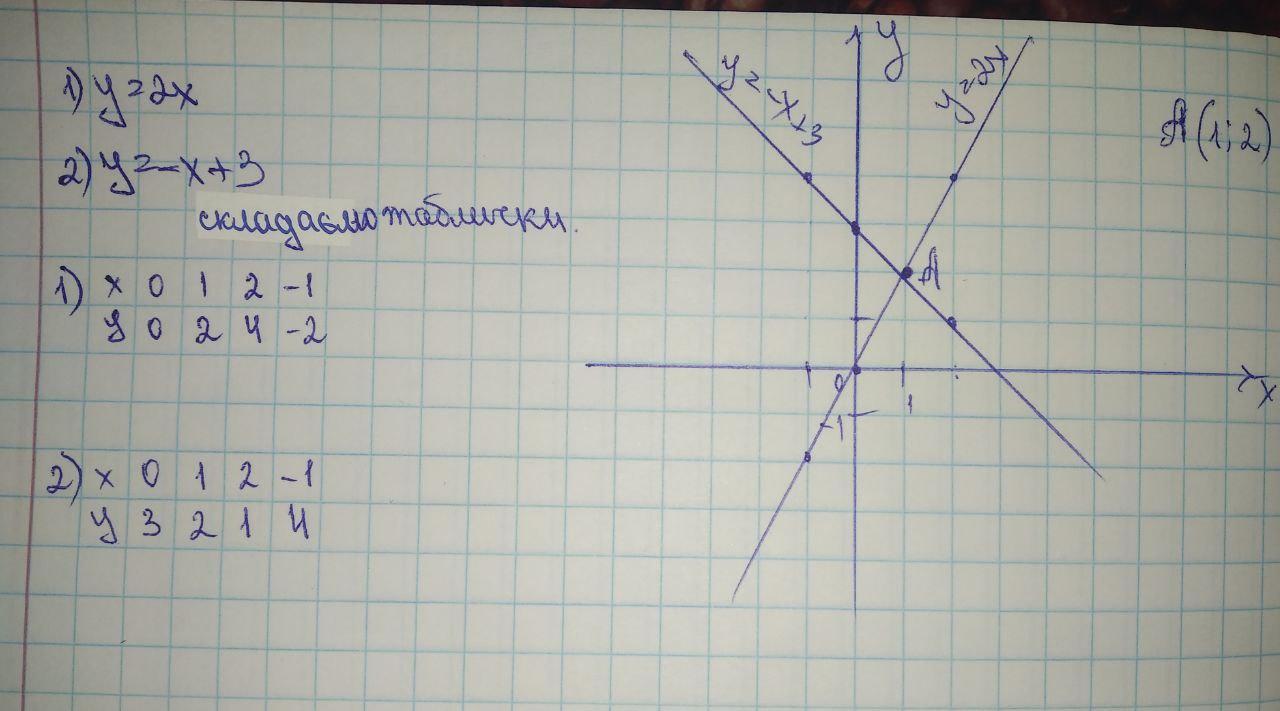 1) y=2x
2) y=-x+3
складаємо таблички.
1) x 0 1 2 -1
y 0 2 4 -2
2) x 0 1 2 -1
y 3 2 1 4
y
y=-x+3
y=2x
A(1;2)
A
0
1
x
-1